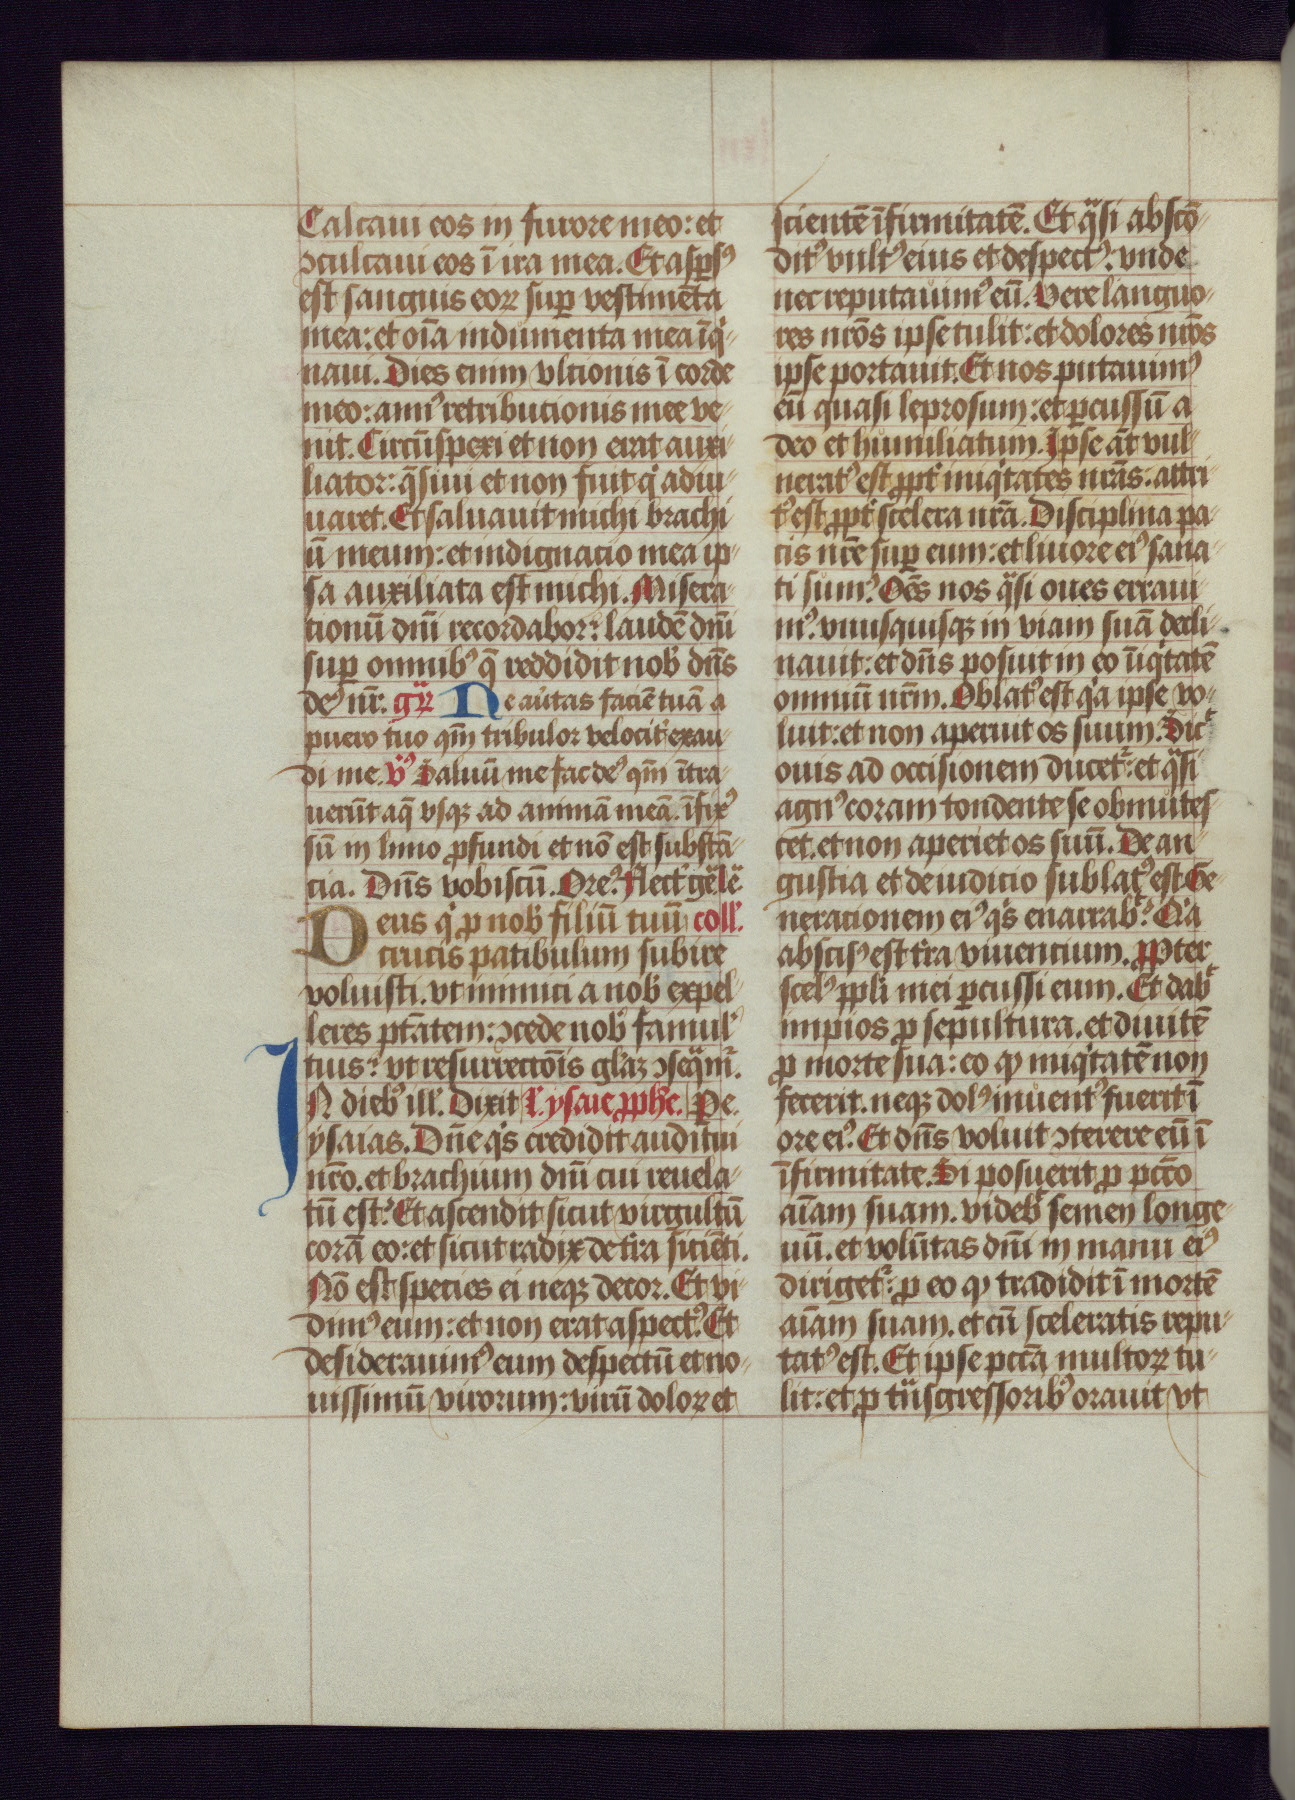 Calcaui eos in furore meo: et
ↄculcaui eos ī ira mea. Et aspsꝰ
est sanguis eoꝝ suꝑ vestimēta
mea: et oīa indumenta mea īqͥ-
naui. Dies enim vltionis ī corde
meo: annꝰ retributionis mee ve-
nit. Circūspexi et non erat auxi-
liator: q̄siui et non fuit qͥ adiu-
uaret. Et saluauit michi brachi
ū meum: et indignacio mea ip-
sa auxiliata est michi. Misera-
tionū dn̄i recordabor: laudē dn̄i
suꝑ omnibꝰ q̄ reddidit nob̾ dn̄s
deꝰ nr̄. gͬ Ne au̾tas faciē tuā a
puero tuo qm̄ tribulor velocit̾ exau-
di me. v̾s Saluū me fac deꝰ qm̄ ītra-
uerūt aq̄ vsqꝫ ad animā meā. īfixꝰ
sū in limo ꝓfundi et nō est substā-
cia. Dn̄s vobiscū. Oreꝰ. flectꝰ gē le.
Deus qͥ ꝓ nob̾ filiū tuū coll̾.
crucis patibulum subire
voluisti. vt inimici a nob̾ expel-
leres ptātem: ↄcede nob̾ famulꝰ
tuis: vt resurrectōis gͣaꝫ ↄseqͣmͬ.
IN dieb̾ ill̾. Dixit l̾. ysaie ꝓph̄e. Pe.
ysaias. Dn̄e qͥs credidit auditui
nr̄o. et brachium dn̄i cui reuela-
tū est? Et ascendit sicut virgultū
corā eo: et sicut radix de t̾ra sitiēti.
Nō est species ei neqꝫ decor. Et vi-
dimꝰ eum: et non erat aspectꝰ. Et
desiderauimꝰ eum despectū et no-
uissimū virorum: virū doloꝝ et
scientē īfirmitatē. Et qͣsi abscō-
ditꝰ vultꝰ eius et despectꝰ: vnde
nec reputauimꝰ eū. Vere languo-
res nr̄os ipse tulit: et dolores nr̄os
ipse portauit. Et nos putauimꝰ
eū quasi leprosum: et ꝑcussū a
deo et humiliatum. Ipse āt vul-
neratꝰ est ꝓpt̾ iniqͥtates nr̄as: attri-
tꝰ est ꝓpt̾ scelera nr̄a. Disciplina pa-
cis nr̄e suꝑ eum: et liuore eiꝰ sana-
ti sumꝰ. Oēs nos qͣsi oues erraui-
mꝰ. vnusquisqꝫ in viam suā decli-
nauit: et dn̄s posuit in eo īiqͥtatē
omniū nr̄m. Oblatꝰ est qͥa ipse vo-
luit: et non aperuit os suum. Sic̾
ouis ad occisionem ducetͬ: et qͣsi
agnꝰ coram tondente se obmutes-
cet. et non aperiet os suū. De an-
gustia et de iudicio sublatꝰ est. Ge-
nerationem eiꝰ qͥs enarrab̾? Qͥa
abscisꝰ est t̾ra viuencium. Propter
scelꝰ ppl̾i mei ꝑcussi eum. Et dab̾
impios ꝓ sepultura. et diuitē
ꝓ morte sua: eo ꝙ iniqͥtatē non
fecerit. neqꝫ dolꝰ inuentꝰ fuerit ī
ore eiꝰ. Et dn̄s voluit ↄterere eū ī
īfirmitate. Si posuerit ꝓ pctō
aīam suam. videb̾ semen longe-
uū. et volūtas dn̄i in manu eiꝰ
dirigetͬ: ꝓ eo ꝙ tradidit ī mortē
aīam suam. et cū sceleratis repu-
tatꝰ est. Et ipse pctā multoꝝ tu-
lit: et ꝓ tͣnsgressoribꝰ orauit vt